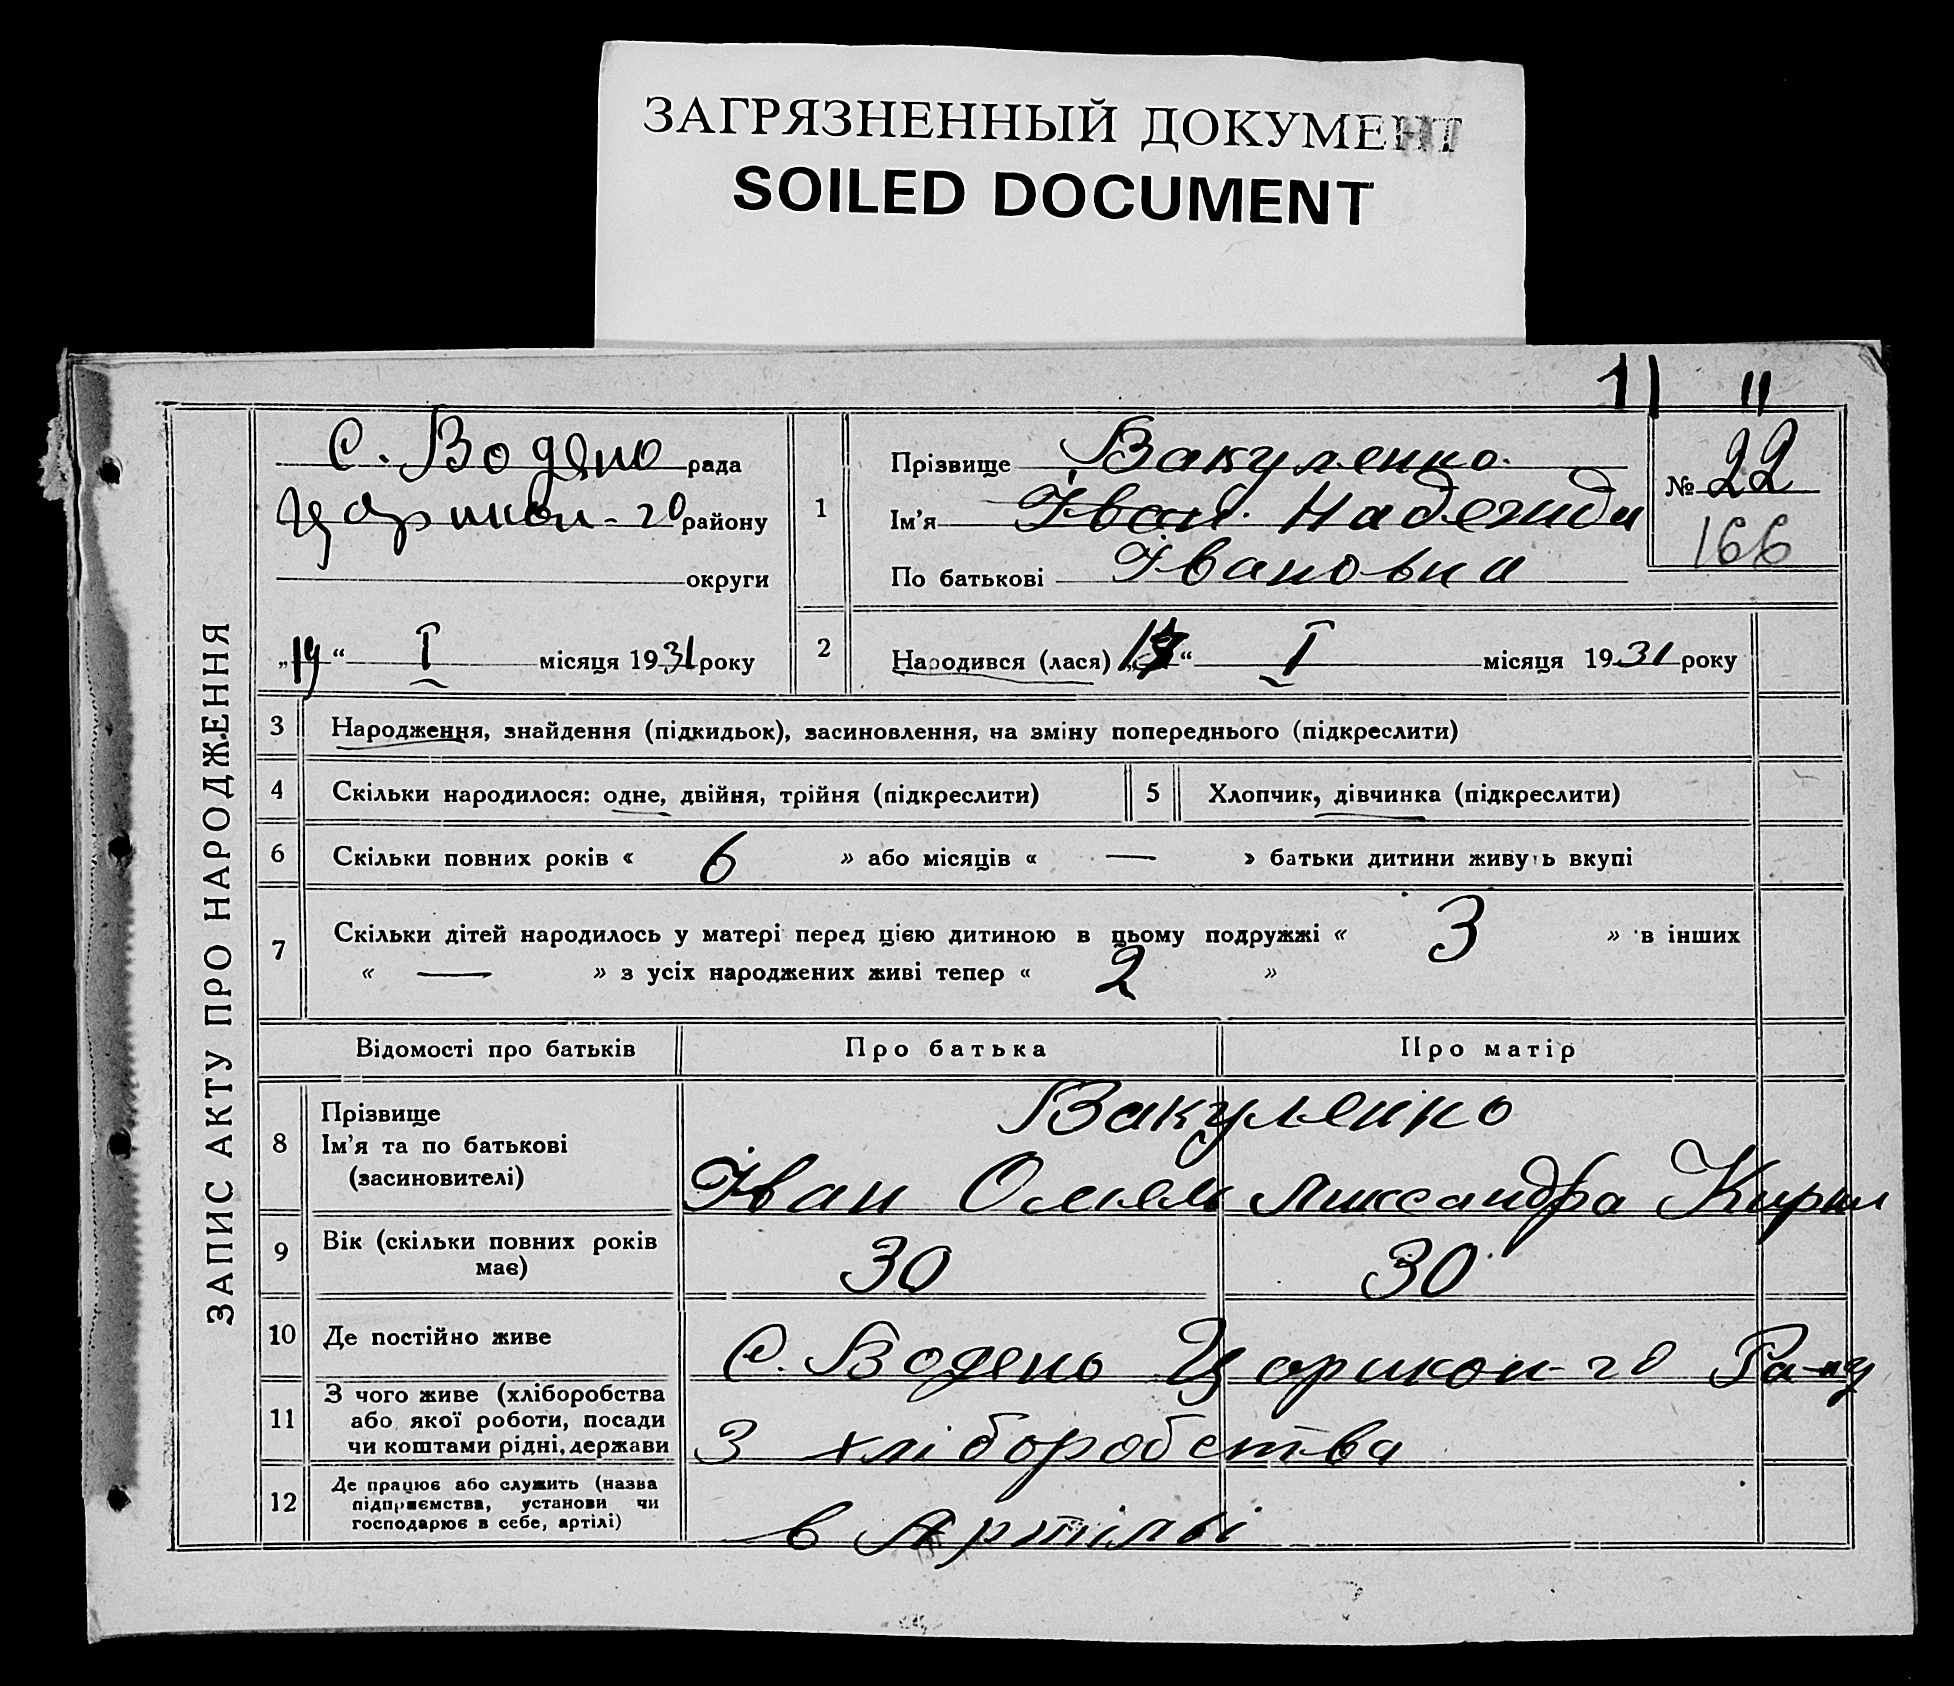 ЗАГРЯЗНЕННЫЙ ДОКУМЕНТ
SOILED DOCUMENT
11 11
ЗАПИС АКТУ ПРО НАРОДЖЕННЯ
С. Водяно рада
Царикон-го району
округи
„19“ I місяця 1931 року
1
Прізвище Вакуленко
Ім'я Іван Надежда
По батькові Івановна
№ 22
166
2 Народився (лася) „ “ I місяця 1931 року
3 Народження, знайдення (підкидьок), засиновлення, на зміну попереднього (підкреслити)
4 Скільки народилося: одне, двійня, трійня (підкреслити) 5 Хлопчик, дівчинка (підкреслити)
6 Скільки повних років « 6 » або місяців « — » батьки дитини живуть вкупі
7 Скільки дітей народилось у матері перед цією дитиною в цьому подружжі « 3 » в інших
« — » з усіх народжених живі тепер « 2 »
Відомості про батьків Про батька Про матір
8 Прізвище
Ім'я та по батькові
(засиновителі)
Вакуленко
Іван Кирил
9 Вік (скільки повних років
має)
30 30
10 Де постійно живе С. Водень Царикон-го Ра-ну
11 З чого живе (хліборобства
або якої роботи, посади
чи коштами рідні, держави
З хліборобства
12 Де працює або служить (назва
підприємства, установи чи
господарює в себе, артілі)
в Артілі